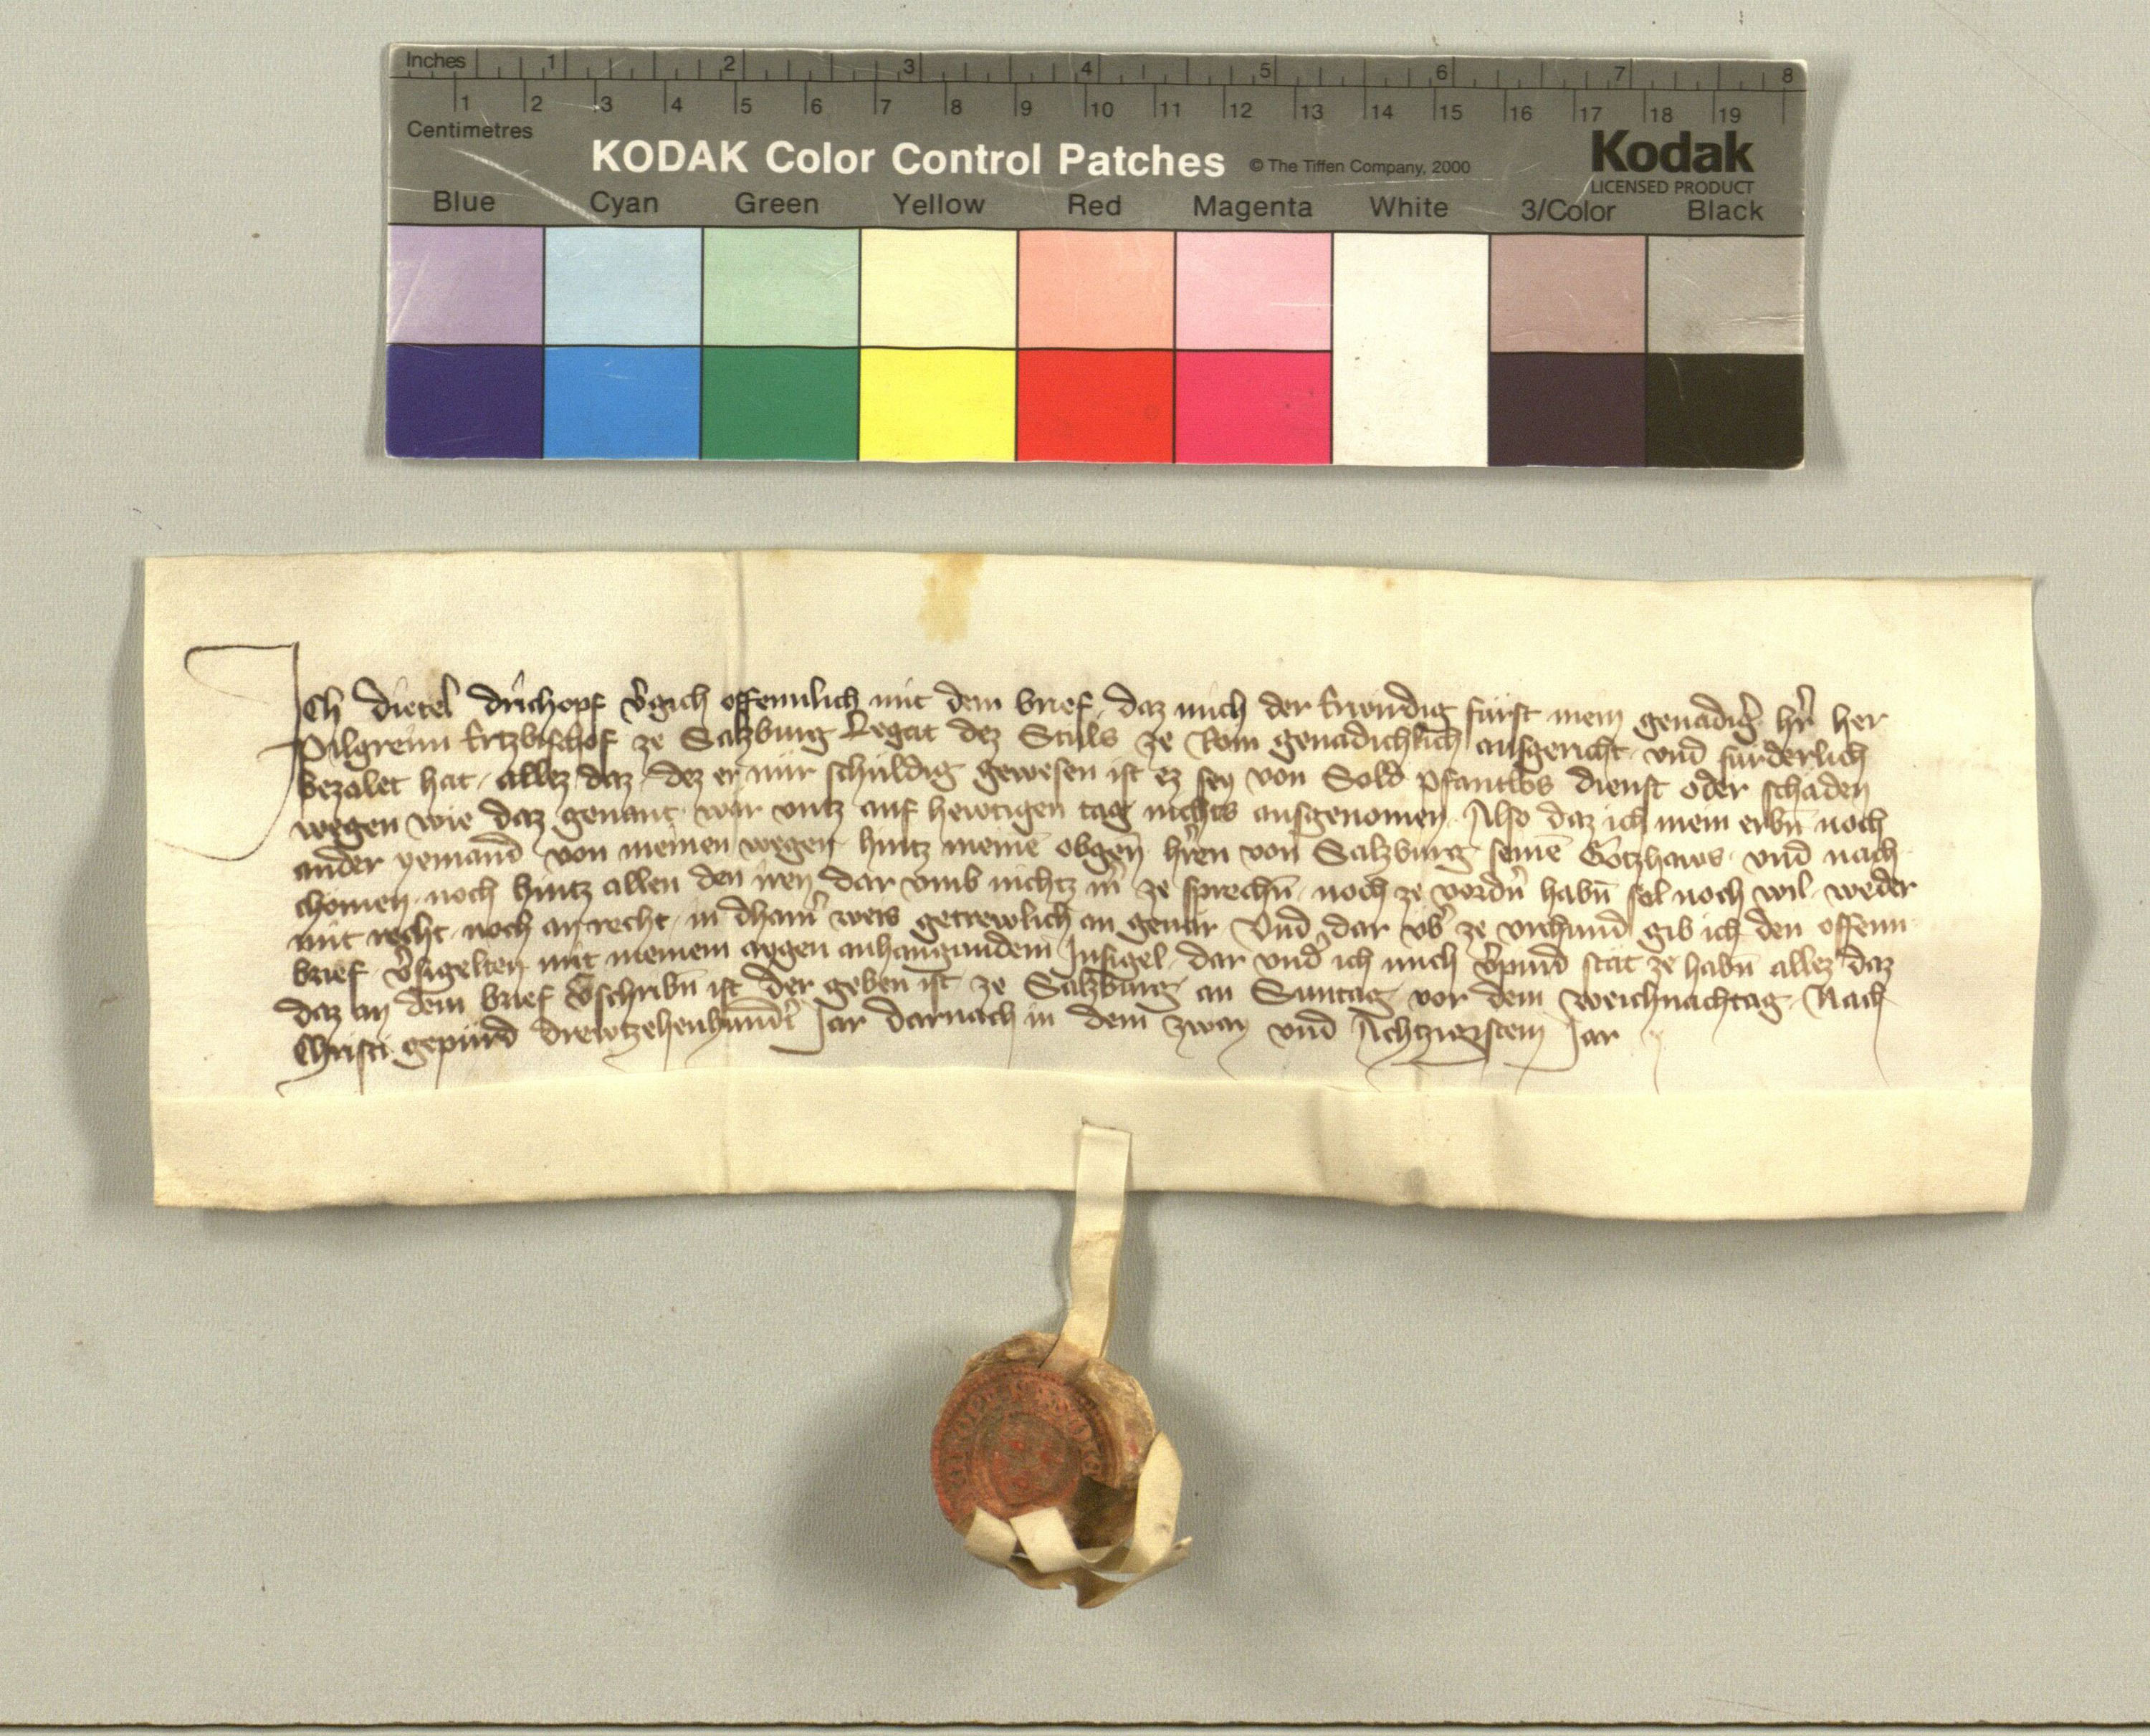 Inches 1 2 3 4 5 6 7 8
1 2 3 4 5 6 7 8 9 10 11 12 13 14 15 16 17 18 19
Centimetres
KODAK Color Control Patches © The Tiffen Company, 2000 Kodak
LICENSED PRODUCT
Blue Cyan Green Yellow Red Magenta White 3/Color Black
Ich Dietel Druchopf v͛gich offennlich mit dem brief, daz mich der Erwirdig fürst mein genadig͛ h͛r her
Pilgreim Ertzbischof ze Salzburg Legat dez Stuls ze Rom genadichlich ausgericht und fürderlich
bezalet hat, allez daz, dez er mir schuldig gewesen ist ez sey von Sold pfantlos dienst oder schaden
wegen wie daz genant wär untz auf hewtigen tag nichts ausgenomen. Also daz ich mein erbn̄ noch
ander yemand von meinen wegen hintz meinē obgen̄ h͛ren von Salzburg seinē Gotzhaws und nach
chomen, noch hintz allen den iren dar umb nichtz m͛ ze sprechn̄, noch ze vordn͛ habn̄ sol noch wil, weder
mit recht, noch an recht, in dhain͛ weis getrewlich an gevär Und dar üb͛ ze urchund gib ich den offenn
brief v͛sigelten mit meinem aygen anhangundem Insigel, dar und͛ ich mich v͛pind stät ze habn̄ allez daz
daz an dem brief v͛schribn̄ ist der geben ist ze Salzburg an Suntag vor dem Weichnachtag, Nach
Christi gepürd drewtzehenhund͛t Jar darnach in dem zway und Achtzigistem Jar